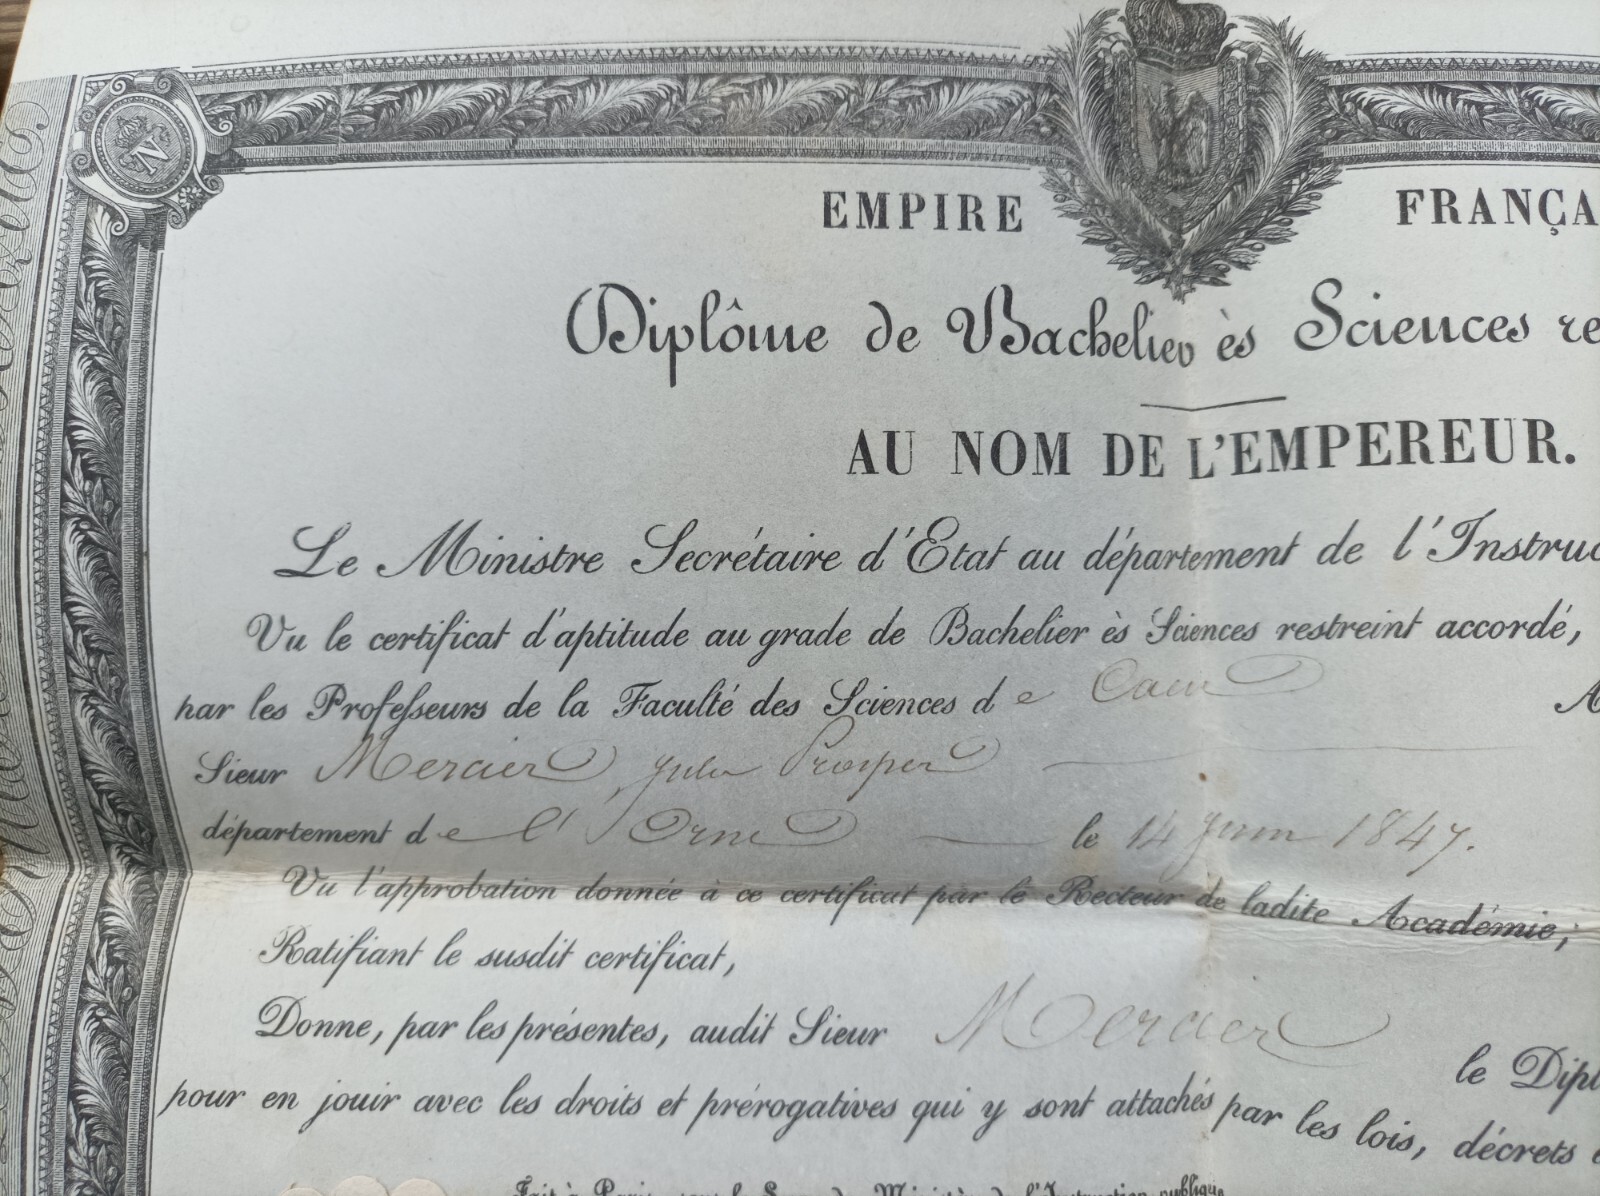 N
EMPIRE FRANÇA
Diplôme de Bachelier ès Sciences re
AU NOM DE L'EMPEREUR.
Le Ministre Secrétaire d'Etat au département de l'Instruc
Vu le certificat d'aptitude au grade de Bachelier ès Sciences restreint accordé,
par les Professeurs de la Faculté des Sciences de Caen A
Sieur Mercier, Jules Prosper
département de l'Orne le 14 Juin 1847.
Vu l'approbation donnée à ce certificat par le Recteur de ladite Académie;
Ratifiant le susdit certificat,
Donne, par les présentes, audit Sieur Mercier le Dipl
pour en jouir avec les droits et prérogatives qui y sont attachés par les lois, décrets e
Fait à Paris, sous le Sceau du Ministère de l'Instruction publique